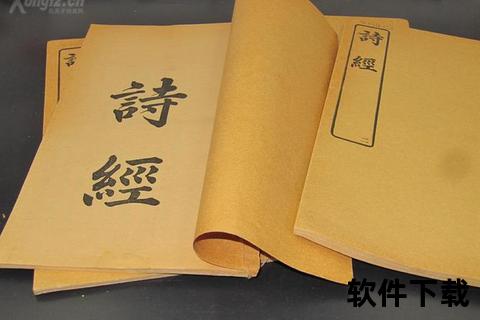 Kongfz.cn
詩
經
詩
經
二
詩
软件下载